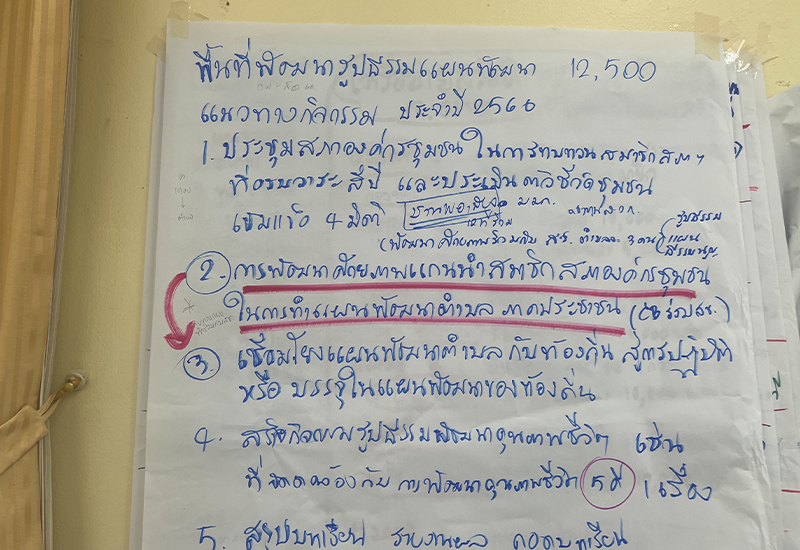 พื้นที่พัฒนารูปธรรมแผนพัฒนา 12,500
แนวทางกิจกรรม ประจำปี 2566
1. ประชุมสภาองค์กรชุมชน ในการทบทวน สมาชิกสภาฯ
ที่ครบวาระ สี่ปี และประเมินตัวชี้วัดชุมชน
เข้มแข็ง 4 มิติ
(พัฒนาศักยภาพร่วมกับ สช. ตำบลละ 3 คน) แผน
2. การพัฒนาศักยภาพแกนนำสมาชิก สภาองค์กรชุมชน
ในการทำแผนพัฒนาตำบล ภาคประชาชน
3. เชื่อมโยงแผนพัฒนาตำบล กับท้องถิ่น สู่การปฏิบัติ
หรือ บรรจุในแผนพัฒนาของท้องถิ่น
4. สร้างกิจกรรมรูปธรรมพัฒนาคุณภาพชีวิต เช่น
ที่สอดคล้องกับ การพัฒนาคุณภาพชีวิต 5 มิติ 1 เรื่อง
5. สรุปบทเรียน รายงานผล ถอดบทเรียน